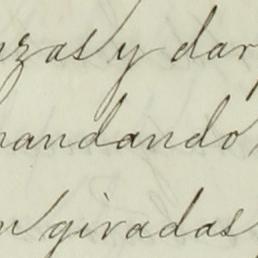 nzas y dar
mandando
n giradas